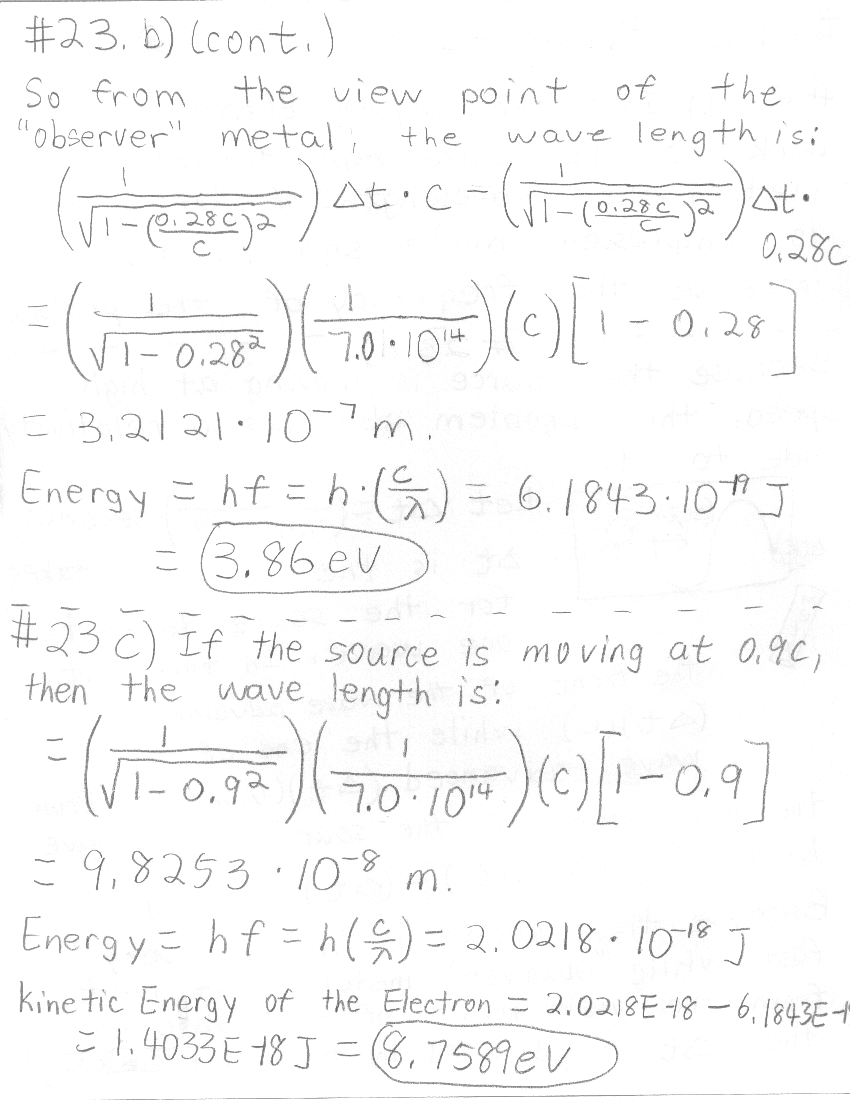 #23. b) (cont.)
So from the view point of the
"observer" metal, the wave length is:
(1/√(1-(0.28c/c)²)) Δt · c - (1/√(1-(0.28c/c)²)) Δt ·
0.28c
= (1/√(1-0.28²)) (1/7.0·10¹⁴) (c) [1 - 0.28]
= 3.2121 · 10⁻⁷ m.
Energy = hf = h·(c/λ) = 6.1843·10⁻¹⁹ J
= 3.86 eV
#23 c) If the source is moving at 0.9c,
then the wave length is:
= (1/√(1-0.9²)) (1/7.0·10¹⁴) (c) [1-0.9]
= 9.8253 · 10⁻⁸ m.
Energy = hf = h(c/λ) = 2.0218 · 10⁻¹⁸ J
kinetic Energy of the Electron = 2.0218E-18 - 6.1843E-1
= 1.4033E-18 J = 8.7589eV